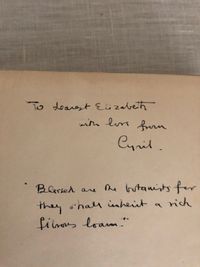 To dearest Elizabeth
with love from
Cyril.
"Blessed are the botanists for
they shall inherit a rich
fibrous loam."